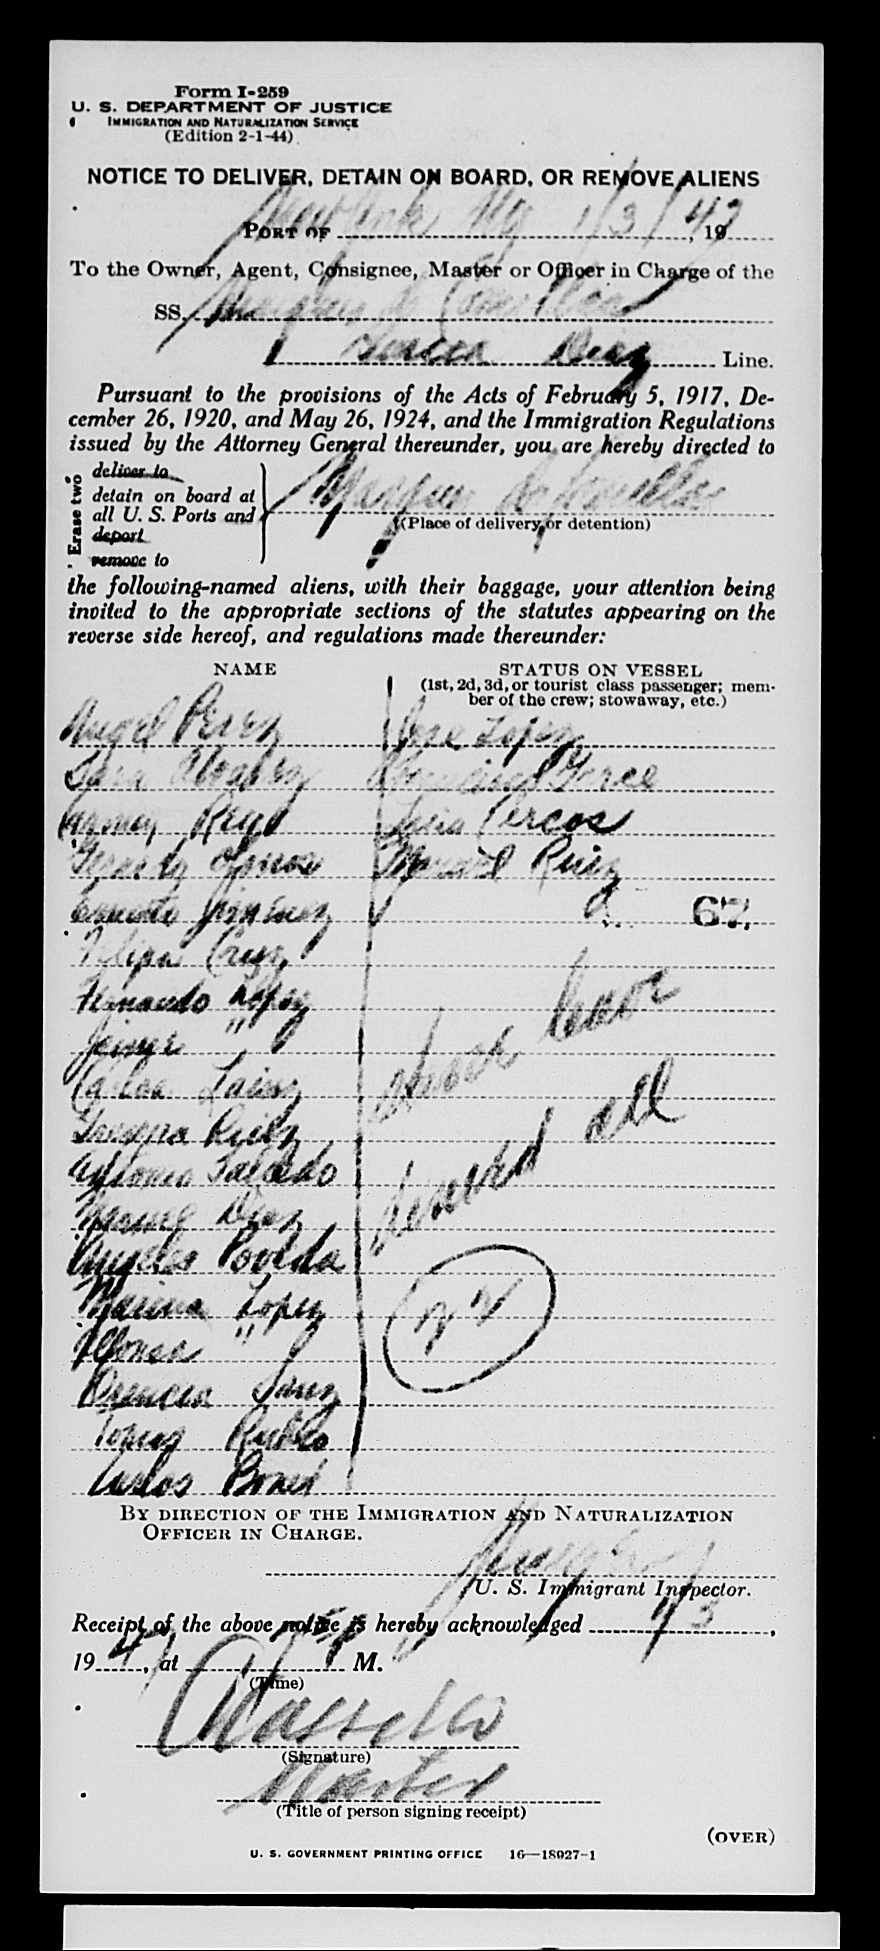 Form I-259
U. S. DEPARTMENT OF JUSTICE
IMMIGRATION AND NATURALIZATION SERVICE
(Edition 2-1-44)
NOTICE TO DELIVER, DETAIN ON BOARD, OR REMOVE ALIENS
PORT OF New York Ny 1/3/47, 19
To the Owner, Agent, Consignee, Master or Officer in Charge of the
SS. Marques de Comillas
Garcia Diaz Line.
Pursuant to the provisions of the Acts of February 5, 1917, De-
cember 26, 1920, and May 26, 1924, and the Immigration Regulations
issued by the Attorney General thereunder, you are hereby directed to
Erase two
deliver to
detain on board at
all U. S. Ports and
deport
remove to
Marques de Comillas
(Place of delivery or detention)
the following-named aliens, with their baggage, your attention being
invited to the appropriate sections of the statutes appearing on the
reverse side hereof, and regulations made thereunder:
NAME
STATUS ON VESSEL
(1st, 2d, 3d, or tourist class passenger; mem-
ber of the crew; stowaway, etc.)
Angel Perez Jose Lopez
Alvarez
Carmen Rey
Manuel Ruiz
Ernesto Jimenez 67.
Felipa Cruz
Fernando Lopez
"
Carlos
Ruiz
Antonio Salcedo
Diaz
Angeles Poveda
Marina Lopez
Alfonso "
Sanz
Tomas Rubio
Carlos
shore leave
denied all
22
BY DIRECTION OF THE IMMIGRATION AND NATURALIZATION
OFFICER IN CHARGE.
U. S. Immigrant Inspector.
Receipt of the above notice is hereby acknowledged 1/3,
1947, at M.
(Time)
(Signature)
Master
(Title of person signing receipt)
(OVER)
U. S. GOVERNMENT PRINTING OFFICE 16—18927-1